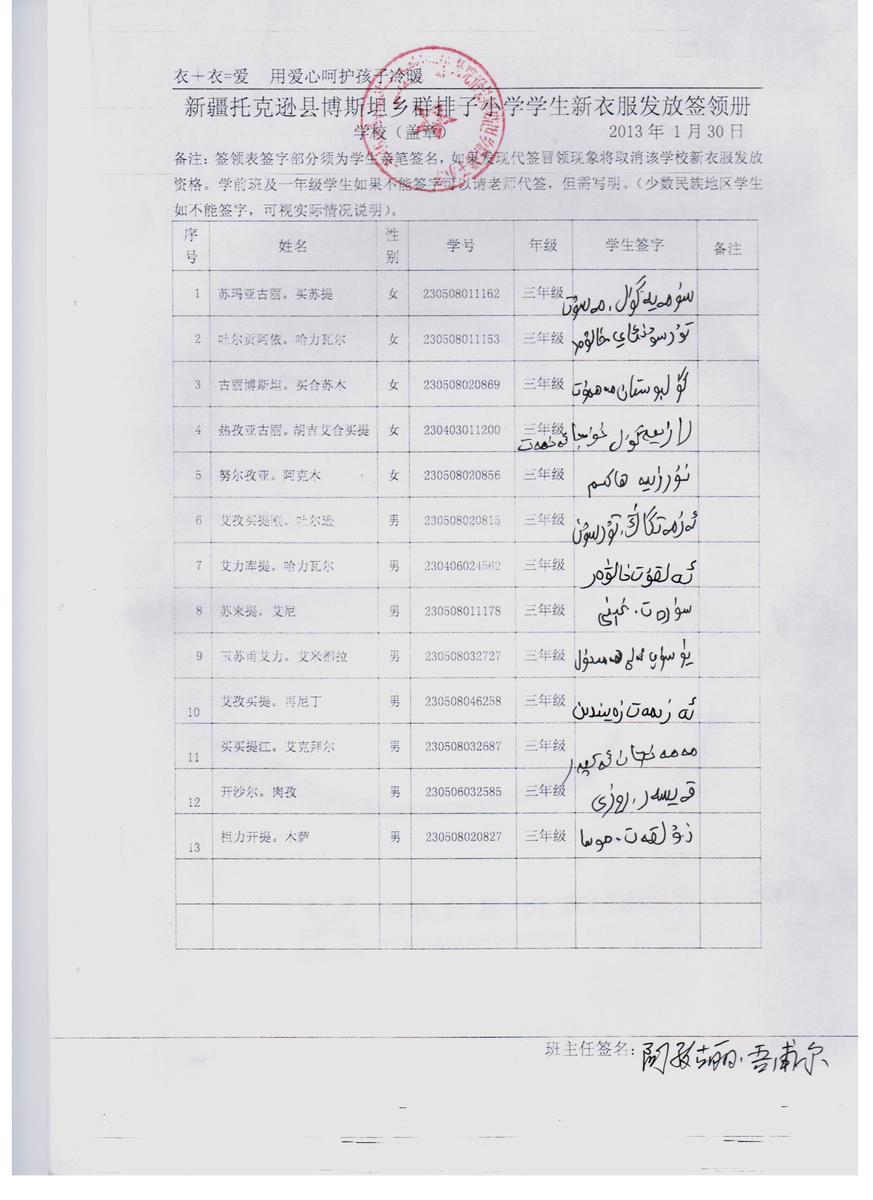 衣+衣=爱 用爱心呵护孩子冷暖
新疆托克逊县博斯坦乡群排子小学学生新衣服发放签领册
学校（盖章 2013 年 1 月 30 日
备注：签领表签字部分须为学生亲笔签名，如果发现代签冒领现象将取消该学校新衣服发放
资格。学前班及一年级学生如果不能签字可以请老师代签，但需写明。（少数民族地区学生
如不能签字，可视实际情况说明）。
序号 姓名 性别 学号 年级 学生签字 备注
1 苏玛亚古丽。买苏提 女 230508011162 三年级 سۈمەيەگۈل، مەسۇت
2 吐尔贡阿依。哈力瓦尔 女 230508011153 三年级
3 古丽博斯坦。买合苏木 女 230508020869 三年级 گۈلبوستان
4 热孜亚古丽。胡吉艾合买提 女 230403011200 三年级
5 努尔孜亚。阿克木 女 230508020856 三年级 نۇرزىيە ھاكىم
6 艾孜买提刚。吐尔逊 男 230508020815 三年级
7 艾力库提。哈力瓦尔 男 230406024562 三年级
8 苏来提。艾尼 男 230508011178 三年级
9 玉苏甫艾力。艾米都拉 男 230508032727 三年级
10 艾孜买提。再尼丁 男 230508046258 三年级 ئەزىمەت زەيندىن
11 买买提江。艾克拜尔 男 230508032687 三年级
12 开沙尔。肉孜 男 230506032585 三年级 قەيسەر، روزى
13 祖力开提。木萨 男 230508020827 三年级 زۇلقەت، موسا
班主任签名：阿孜古丽·吾甫尔